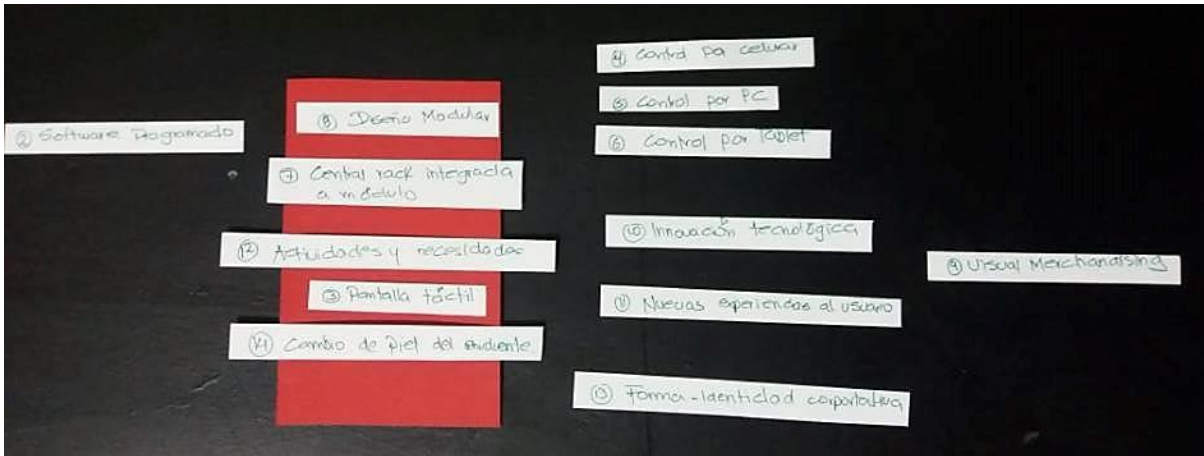 ② Software Programado
⑧ Diseño Modular
⑦ Central rack integrada
a módulo
⑫ Actividades y necesidades
③ Pantalla táctil
⑭ Cambio de Piel del ambiente
④ Control por celular
⑤ Control por PC
⑥ Control por Tablet
⑩ Innovación tecnológica
⑪ Nuevas experiencias al usuario
⑬ Forma - Identidad corporativa
⑨ Visual Merchandising